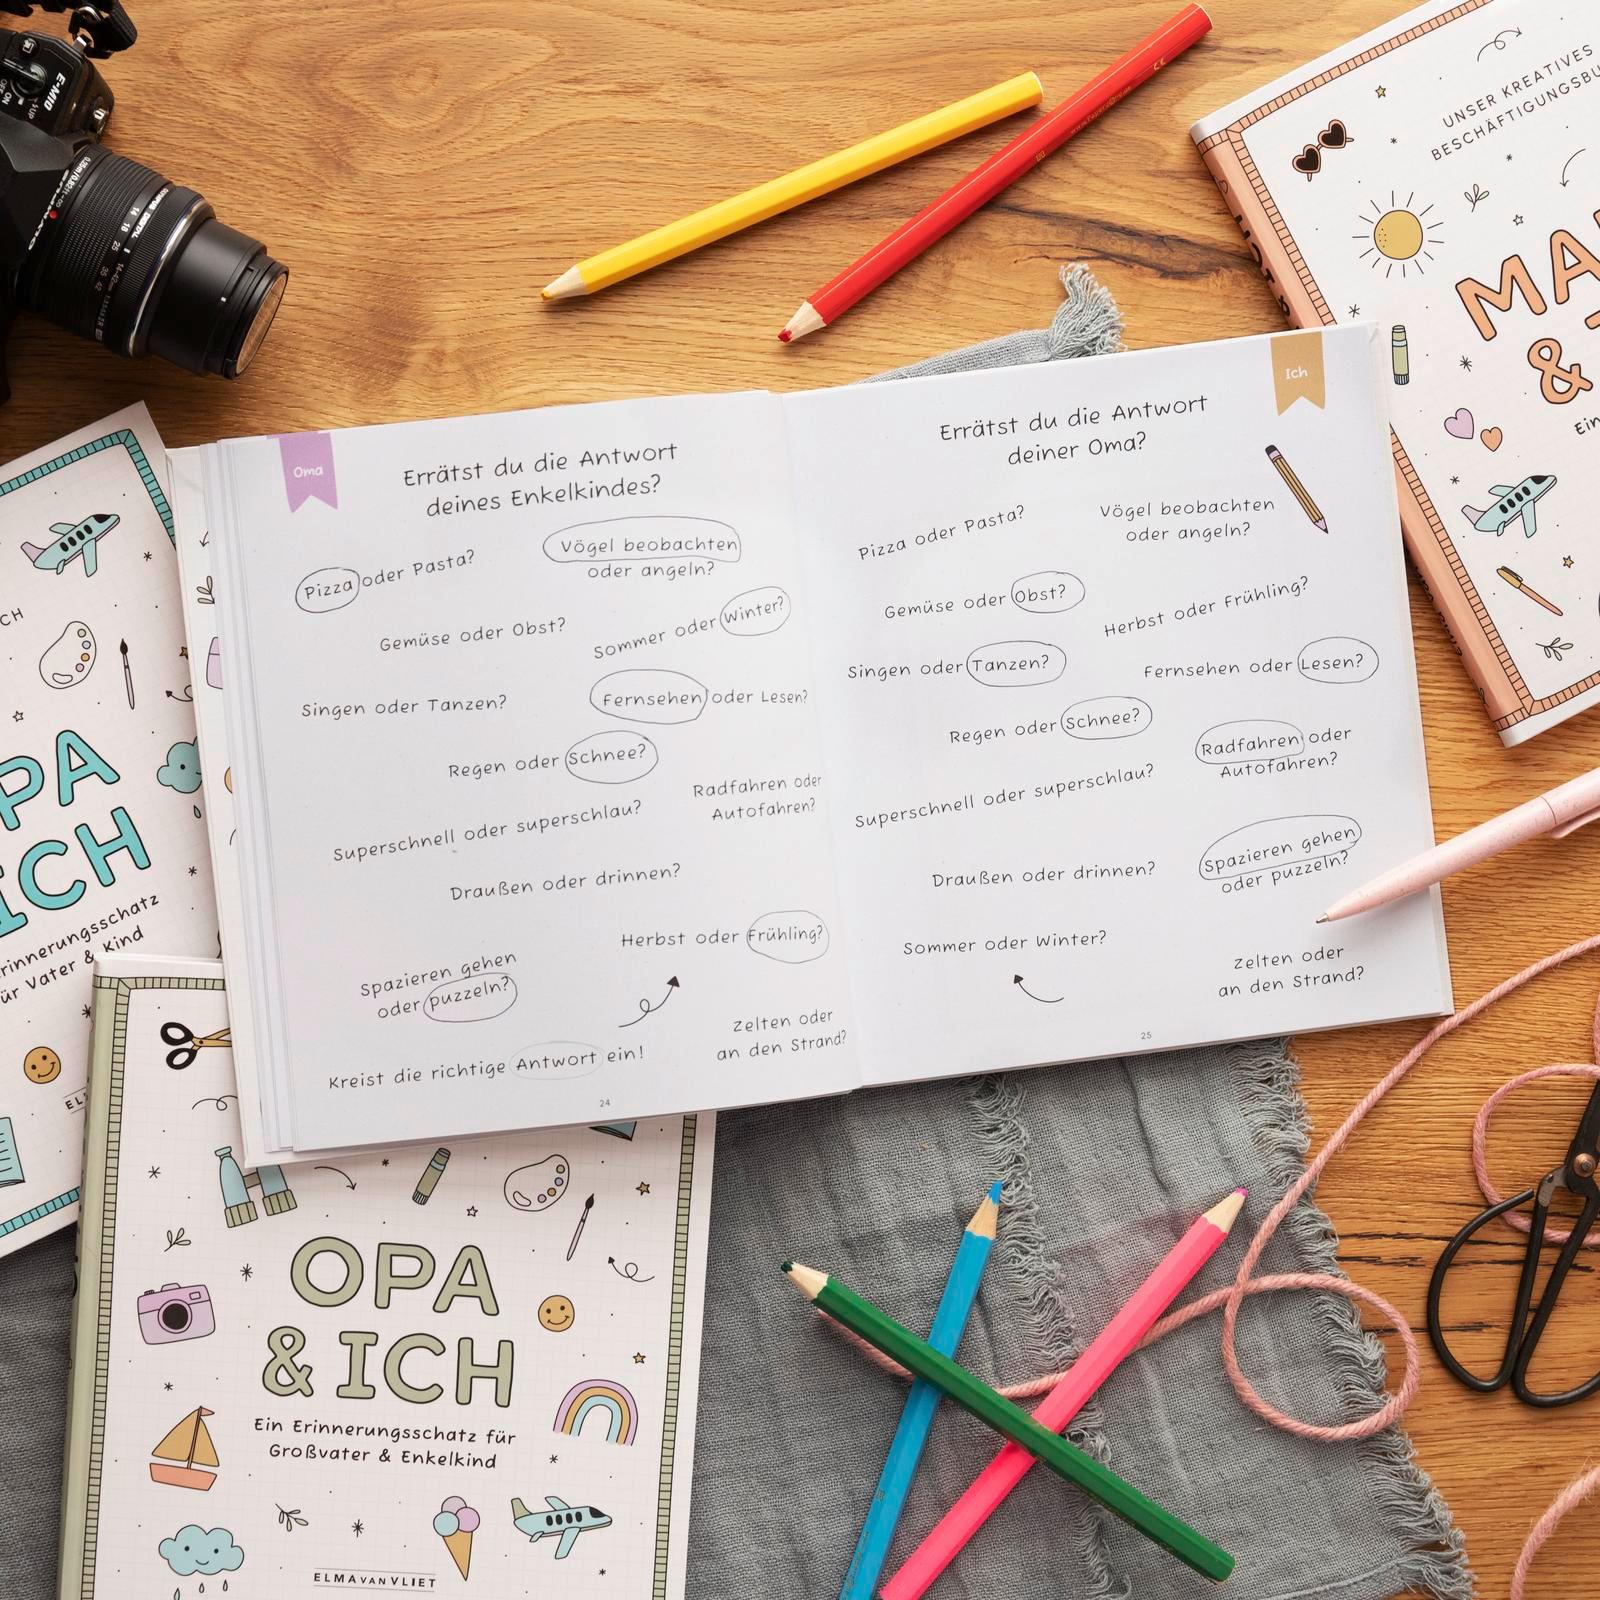 E-M10
OFF
ON
14-42
25
35
42
14
18
UNSER KREATIVES
MA
&
Oma
Errätst du die Antwort
deines Enkelkindes?
Pizza oder Pasta?
Vögel beobachten
oder angeln?
Gemüse oder Obst?
Sommer oder Winter?
Singen oder Tanzen?
Fernsehen oder Lesen?
Regen oder Schnee?
Radfahren oder
Autofahren?
Superschnell oder superschlau?
Draußen oder drinnen?
Herbst oder Frühling?
Spazieren gehen
oder puzzeln?
Zelten oder
an den Strand?
Kreist die richtige Antwort ein!
24
Ich
Errätst du die Antwort
deiner Oma?
Pizza oder Pasta?
Vögel beobachten
oder angeln?
Gemüse oder Obst?
Herbst oder Frühling?
Singen oder Tanzen?
Fernsehen oder Lesen?
Regen oder Schnee?
Radfahren oder
Autofahren?
Superschnell oder superschlau?
Draußen oder drinnen?
Spazieren gehen
oder puzzeln?
Sommer oder Winter?
Zelten oder
an den Strand?
25
PA
ICH
rinnerungsschatz
ür Vater & Kind
OPA
& ICH
Ein Erinnerungsschatz für
Großvater & Enkelkind
ELMA VAN VLIET